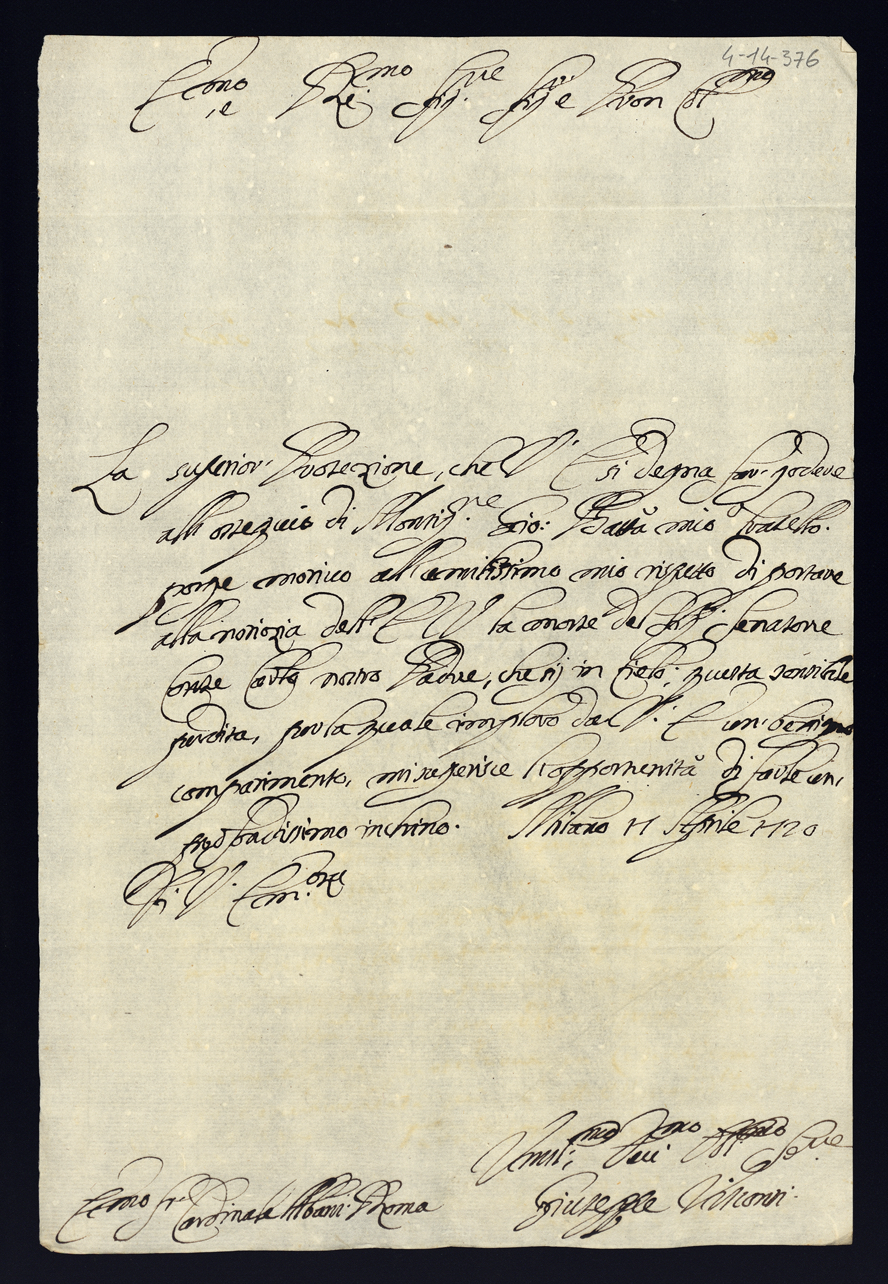 4-14-376
E.mo e R.mo Sig.re Sig.re e Pron Col.mo
La superior Protezione, che V. E. si degna far godere
all' ossequio di Monsig.re Gio: Batta mio fratello
porge motivo all' umilissimo mio rispetto di portare
alla notizia dell' E. V. la morte del Sig.r Senatore
Conte nostro Padre, che sij in Cielo; questa sensibile
perdita, per la quale imploro da V. E. un benigno
compatimento, mi l'opportunità di farle un
profondissimo inchino. Milano 17 Aprile 1720
Di V. Em.za
Umil.mo Dev.mo Obl.mo Se.re
Giuseppe Visconti
E.mo Sr. Cardinale Albani Roma